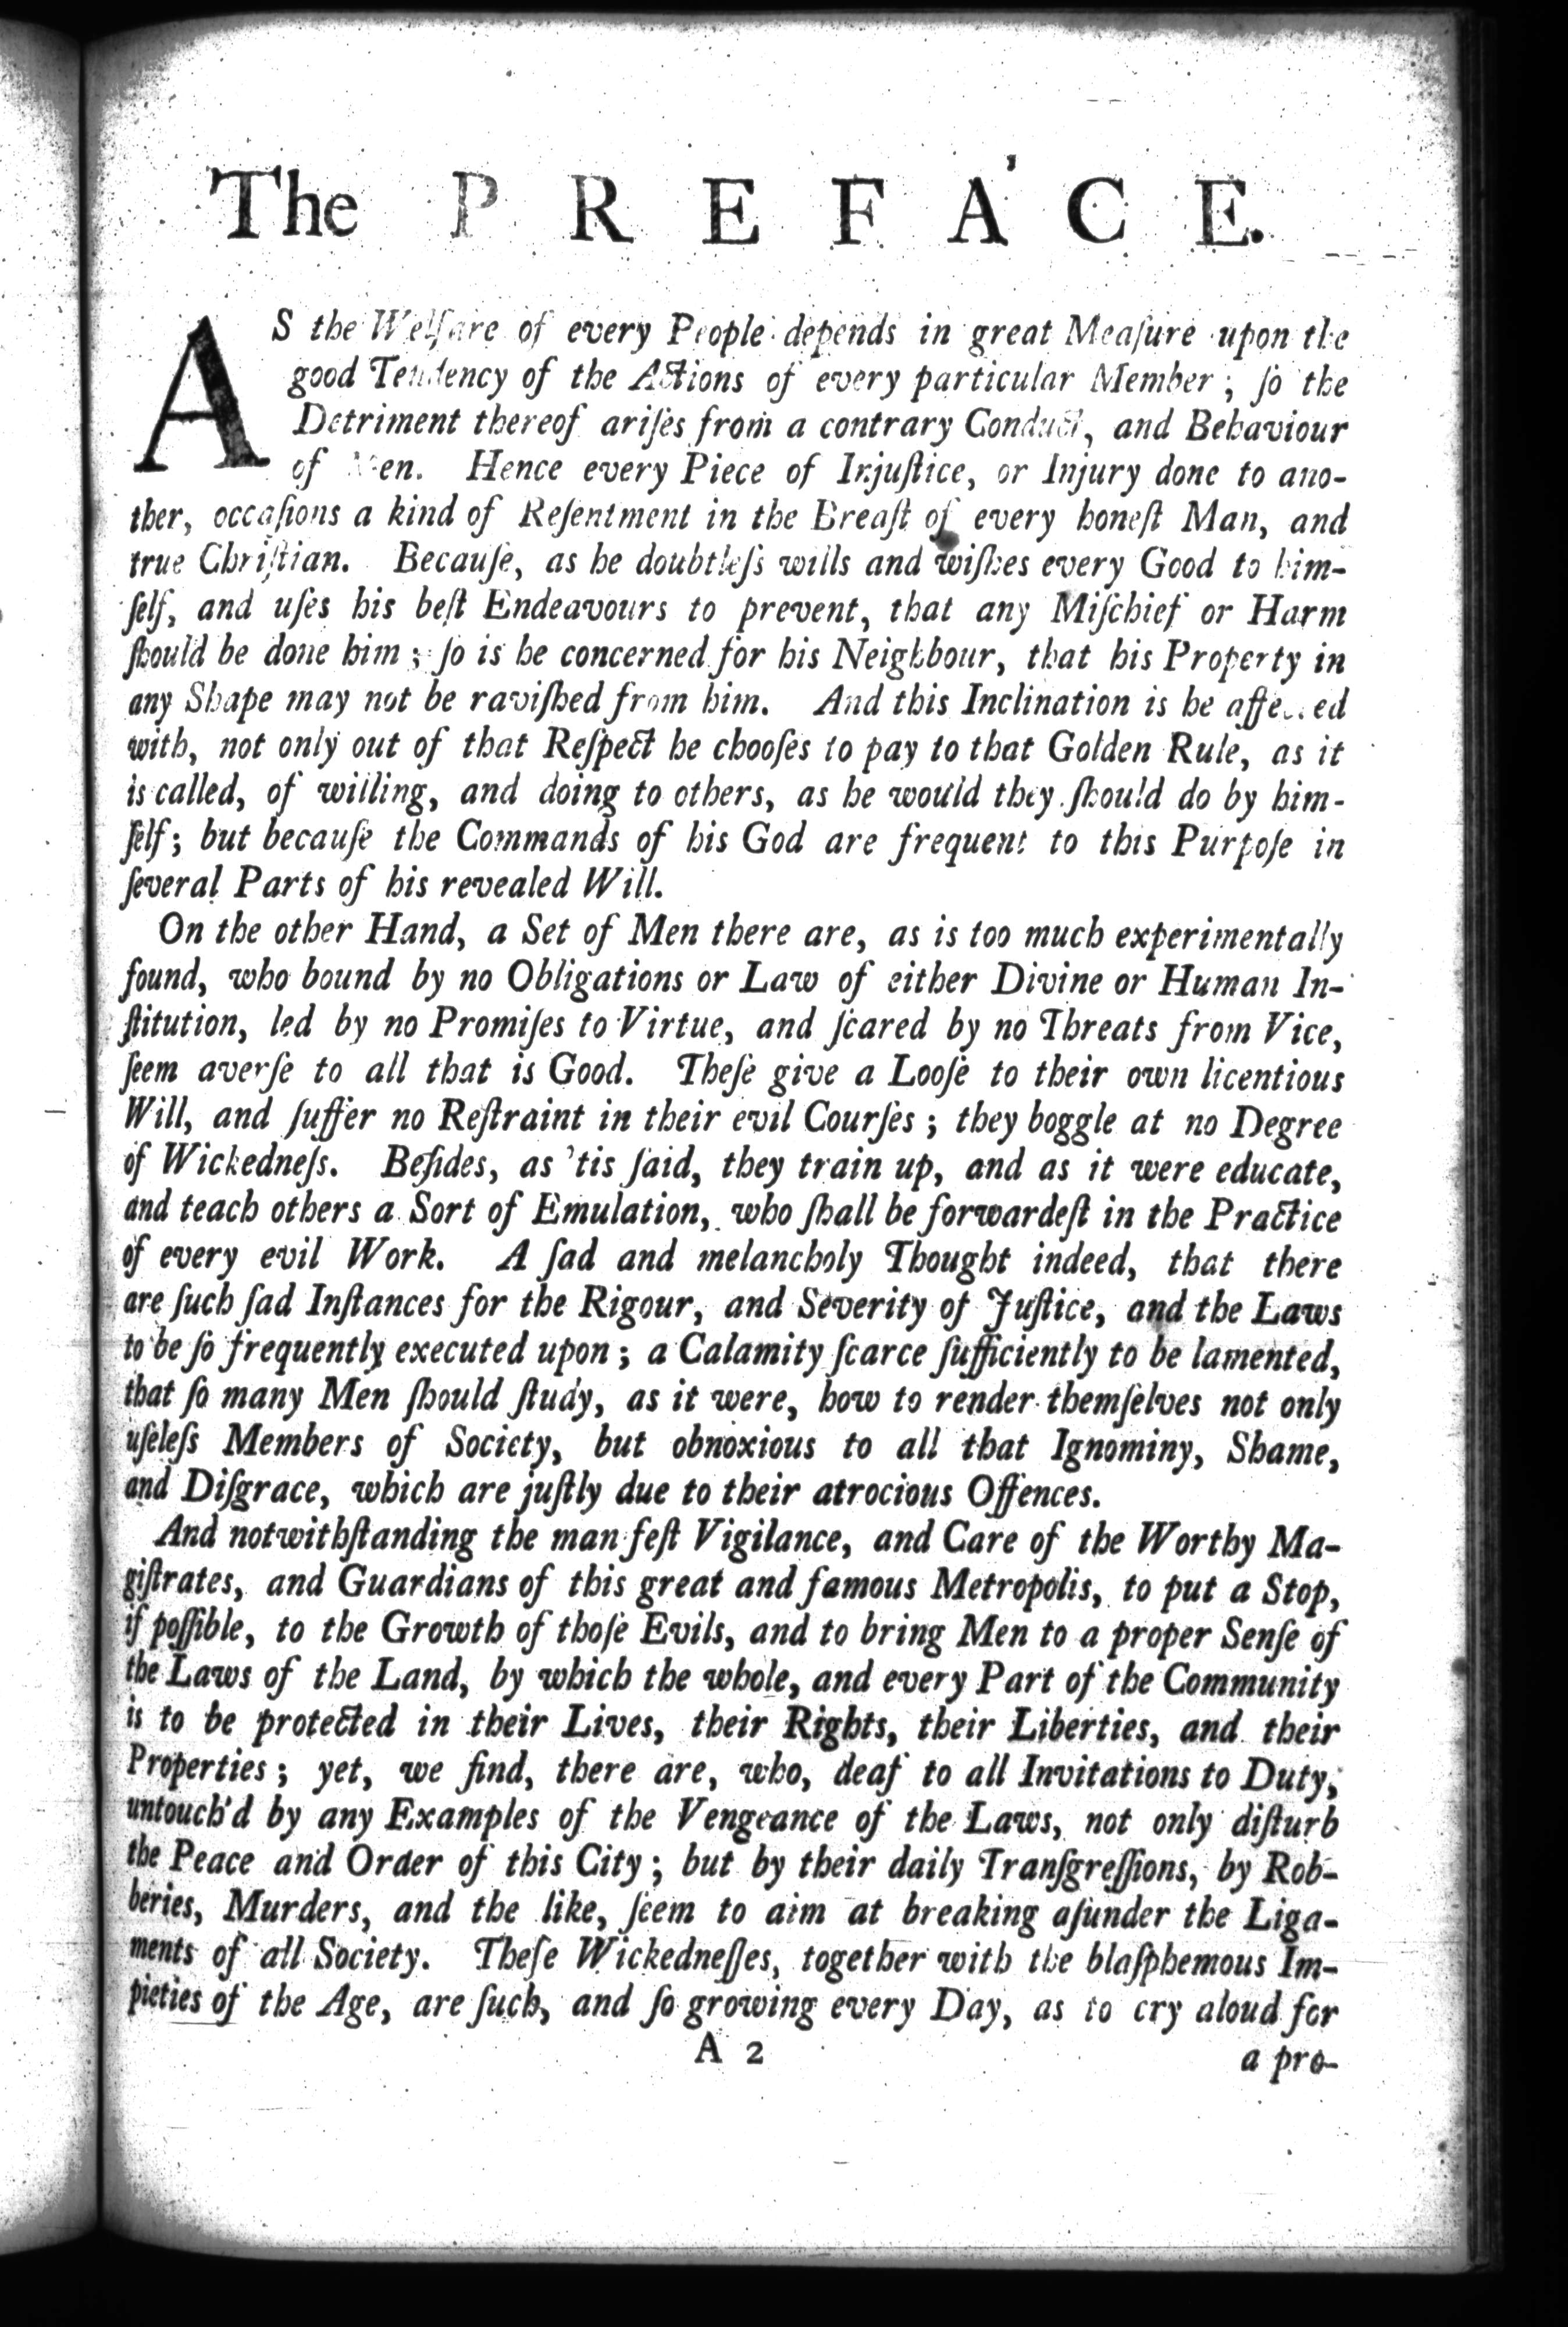 The PREFACE.
AS the Welfare of every People depends in great Meaſure upon the
good Tendency of the Actions of every particular Member; ſo the
Detriment thereof ariſes from a contrary Conduct, and Behaviour
of Men. Hence every Piece of Injuſtice, or Injury done to ano-
ther, occaſions a kind of Reſentment in the Breaſt of every honeſt Man, and
true Chriſtian. Becauſe, as he doubtleſs wills and wiſhes every Good to him-
ſelf, and uſes his beſt Endeavours to prevent, that any Miſchief or Harm
ſhould be done him; ſo is he concerned for his Neighbour, that his Property in
any Shape may not be raviſhed from him. And this Inclination is he affected
with, not only out of that Reſpect he chooſes to pay to that Golden Rule, as it
is called, of willing, and doing to others, as he would they ſhould do by him-
ſelf; but becauſe the Commands of his God are frequent to this Purpoſe in
ſeveral Parts of his revealed Will.
On the other Hand, a Set of Men there are, as is too much experimentally
found, who bound by no Obligations or Law of either Divine or Human In-
ſtitution, led by no Promiſes to Virtue, and ſcared by no Threats from Vice,
ſeem averſe to all that is Good. Theſe give a Looſe to their own licentious
Will, and ſuffer no Reſtraint in their evil Courſes; they boggle at no Degree
of Wickedneſs. Beſides, as 'tis ſaid, they train up, and as it were educate,
and teach others a Sort of Emulation, who ſhall be forwardeſt in the Practice
of every evil Work. A ſad and melancholy Thought indeed, that there
are ſuch ſad Inſtances for the Rigour, and Severity of Juſtice, and the Laws
to be ſo frequently executed upon; a Calamity ſcarce ſufficiently to be lamented,
that ſo many Men ſhould ſtudy, as it were, how to render themſelves not only
uſeleſs Members of Society, but obnoxious to all that Ignominy, Shame,
and Diſgrace, which are juſtly due to their atrocious Offences.
And notwithſtanding the manifeſt Vigilance, and Care of the Worthy Ma-
giſtrates, and Guardians of this great and famous Metropolis, to put a Stop,
if poſſible, to the Growth of thoſe Evils, and to bring Men to a proper Senſe of
the Laws of the Land, by which the whole, and every Part of the Community
is to be protected in their Lives, their Rights, their Liberties, and their
Properties; yet, we find, there are, who, deaf to all Invitations to Duty,
untouch'd by any Examples of the Vengeance of the Laws, not only diſturb
the Peace and Order of this City; but by their daily Tranſgreſſions, by Rob-
beries, Murders, and the like, ſeem to aim at breaking aſunder the Liga-
ments of all Society. Theſe Wickedneſſes, together with the blaſphemous Im-
pieties of the Age, are ſuch, and ſo growing every Day, as to cry aloud for
A 2
a pro-